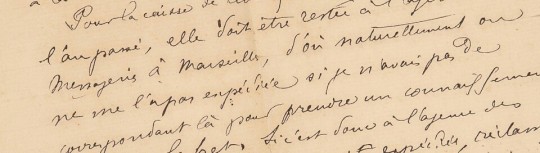 Pour la caisse de
l'an passé, elle doit être restée à l'agence
Messagerie à Marseille, d'où naturellement on
ne me l'a pas expédiée si je n'avais pas de
correspondant là pour prendre un connaissement
Si c'est donc à l'agence des
expédiée, réclam